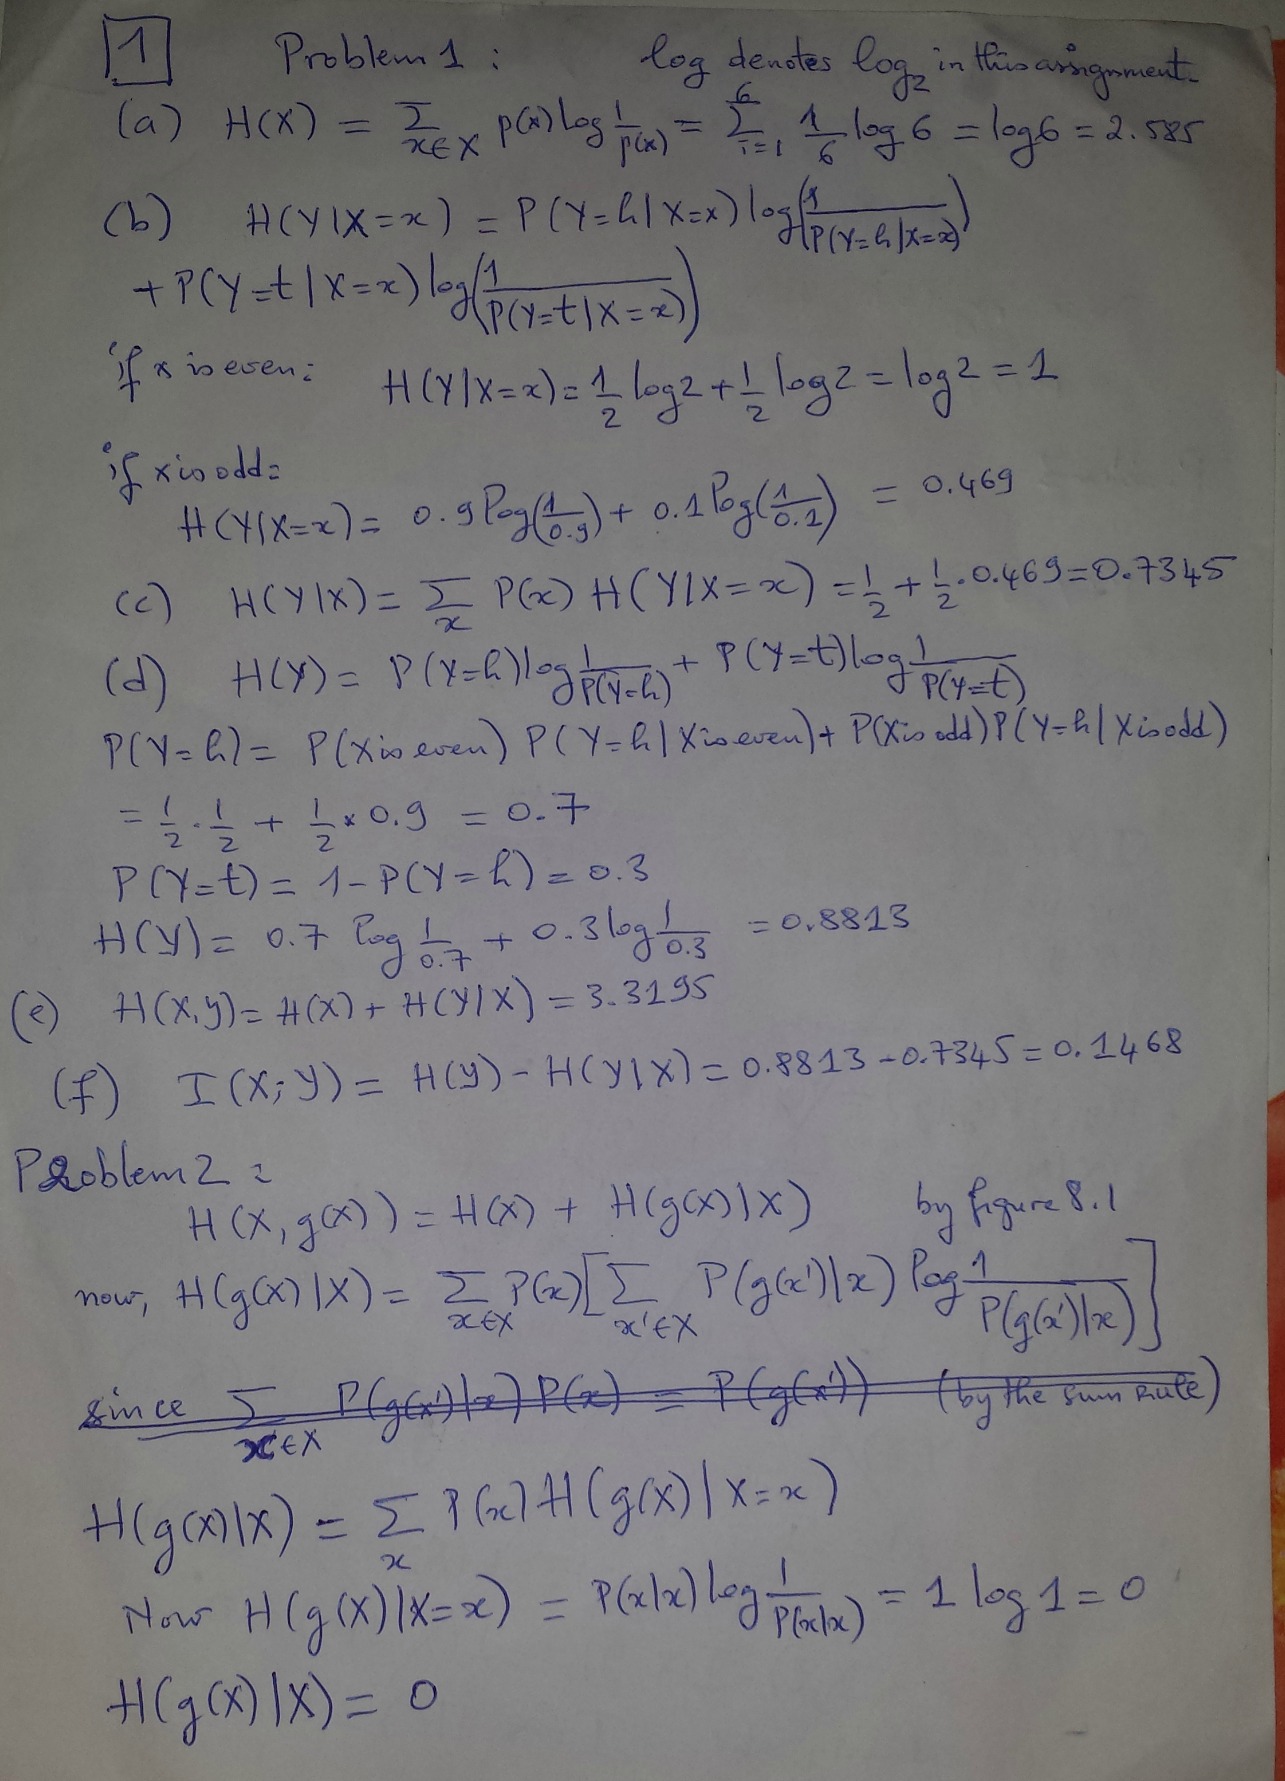 1 Problem 1 : log denotes log₂ in this assignment.
(a) H(X) = Σ_{x∈X} p(x) log 1/p(x) = Σ_{i=1}^{6} 1/6 log 6 = log 6 = 2.585
(b) H(Y|X=x) = P(Y=h|X=x) log(1/P(Y=h|X=x))
+ P(Y=t|X=x) log(1/P(Y=t|X=x))
if x is even: H(Y|X=x) = 1/2 log 2 + 1/2 log 2 = log 2 = 1
if x is odd:
H(Y|X=x) = 0.9 log(1/0.9) + 0.1 log(1/0.1) = 0.469
(c) H(Y|X) = Σ_x P(x) H(Y|X=x) = 1/2 + 1/2 · 0.469 = 0.7345
(d) H(Y) = P(Y=h) log 1/P(Y=h) + P(Y=t) log 1/P(Y=t)
P(Y=h) = P(X is even) P(Y=h | X is even) + P(X is odd) P(Y=h | X is odd)
= 1/2 · 1/2 + 1/2 × 0.9 = 0.7
P(Y=t) = 1 - P(Y=h) = 0.3
H(Y) = 0.7 log 1/0.7 + 0.3 log 1/0.3 = 0.8813
(e) H(X,Y) = H(X) + H(Y|X) = 3.3195
(f) I(X;Y) = H(Y) - H(Y|X) = 0.8813 - 0.7345 = 0.1468
Problem 2 :
H(X, g(X)) = H(X) + H(g(X)|X) by figure 8.1
now, H(g(X)|X) = Σ_{x∈X} P(x) [Σ_{x'∈X} P(g(x')|x) log 1/P(g(x')|x)]
since Σ_{x∈X} P(g(x')|x) P(x) = P(g(x')) (by the sum rule)
H(g(X)|X) = Σ_x P(x) H(g(X) | X=x)
Now H(g(X)|X=x) = P(x|x) log 1/P(x|x) = 1 log 1 = 0
H(g(X)|X) = 0